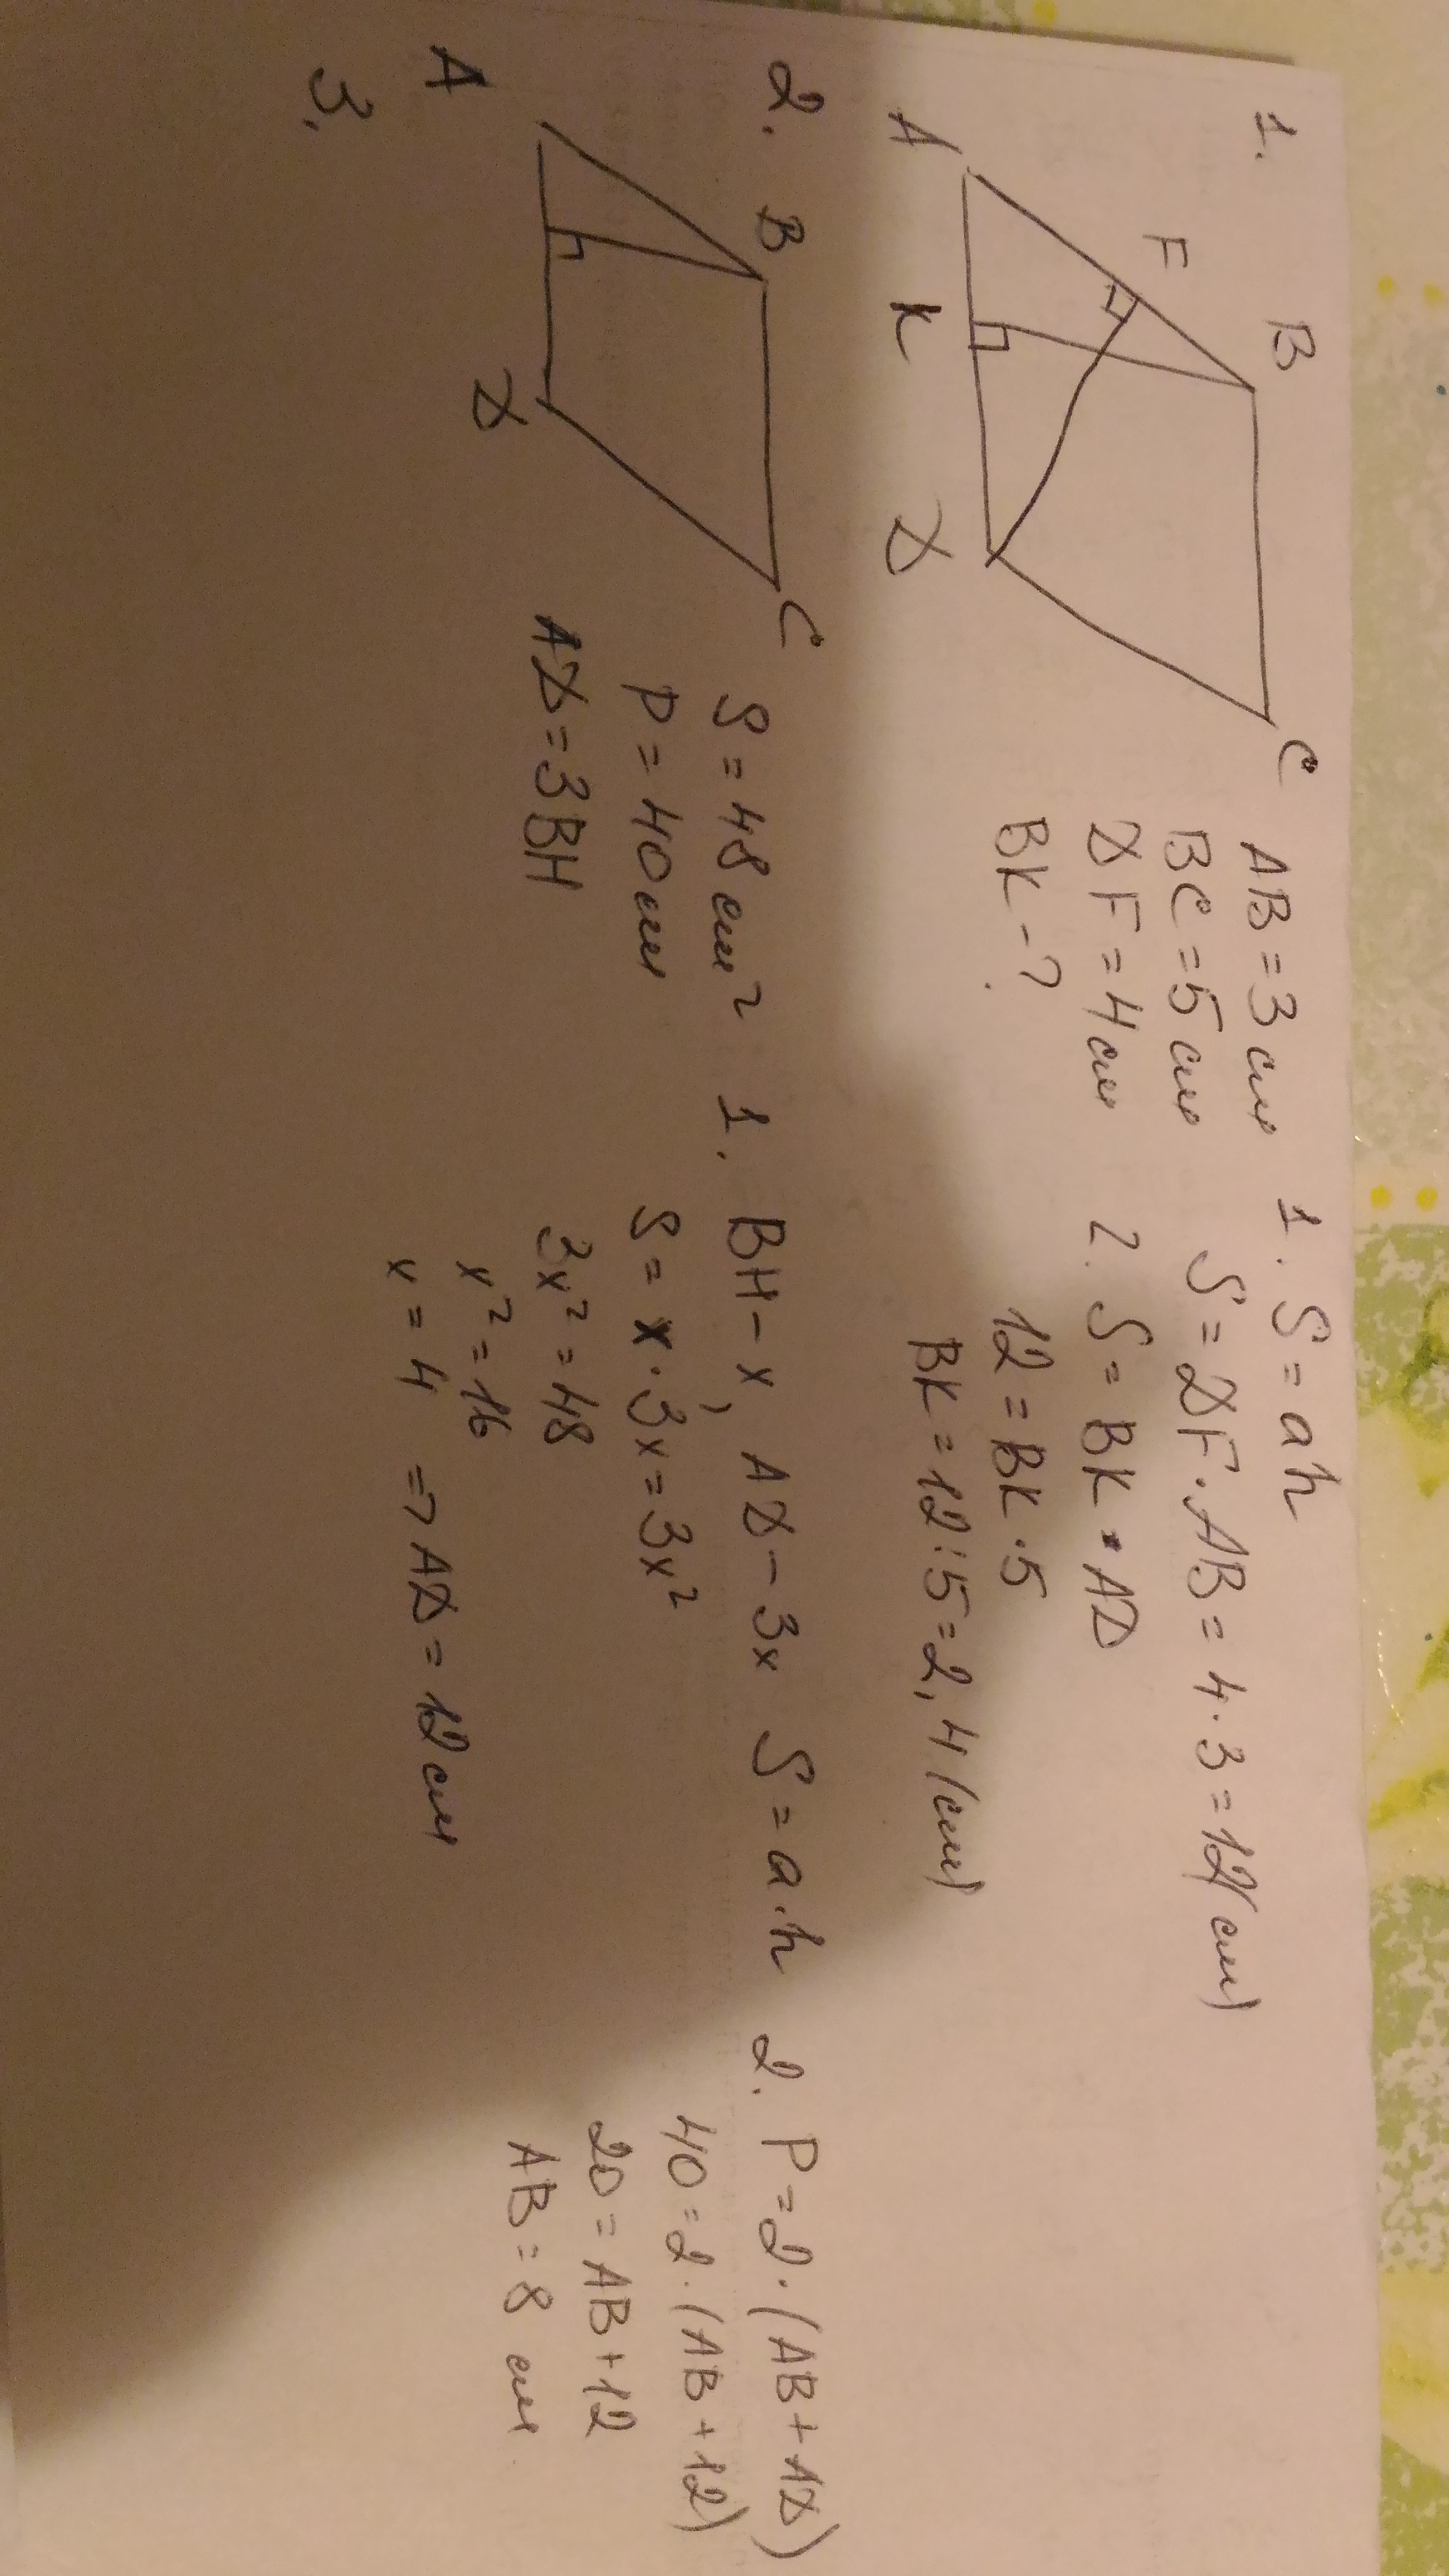 1.
B
F
C
A
K
D
AB = 3 см
BC = 5 см
DF = 4 см
BK - ?
1. S = ah
S = DF · AB = 4 · 3 = 12 (см)
2. S = BK · AD
12 = BK · 5
BK = 12 : 5 = 2,4 (см)
2.
B
C
A
D
S = 48 см²
P = 40 см
AD = 3BH
1. BH - x, AD - 3x S = a · h
S = x · 3x = 3x²
3x² = 48
x² = 16
x = 4 => AD = 12 см
2. P = 2 · (AB + AD)
40 = 2 · (AB + 12)
20 = AB + 12
AB = 8 см.
3.